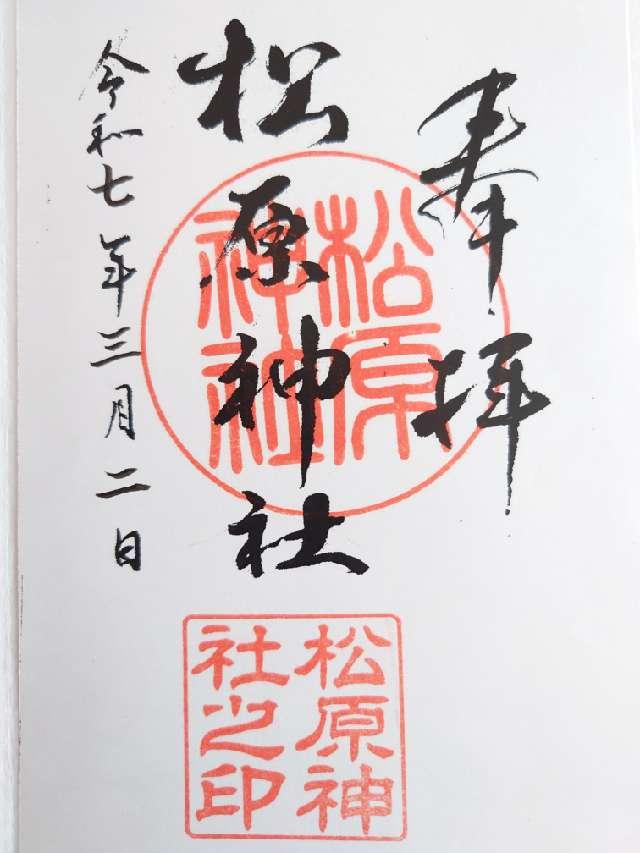 奉拝
松原神社
令和七年三月二日
松原
神社
松原神
社之印